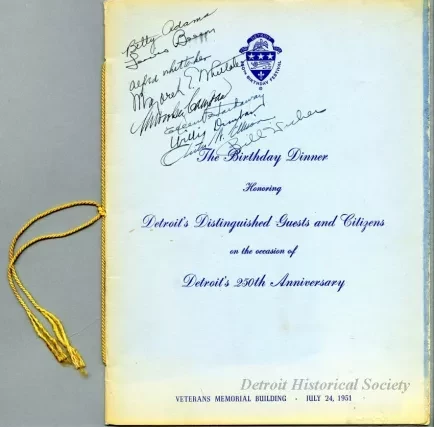 Betty Adams
Alfred Whittaker
Margaret E. Whittaker
Willis Dunbar
Bill Archer
DETROIT
250TH BIRTHDAY FESTIVAL
The Birthday Dinner
Honoring
Detroit's Distinguished Guests and Citizens
on the occasion of
Detroit's 250th Anniversary
Detroit Historical Society
VETERANS MEMORIAL BUILDING · JULY 24, 1951